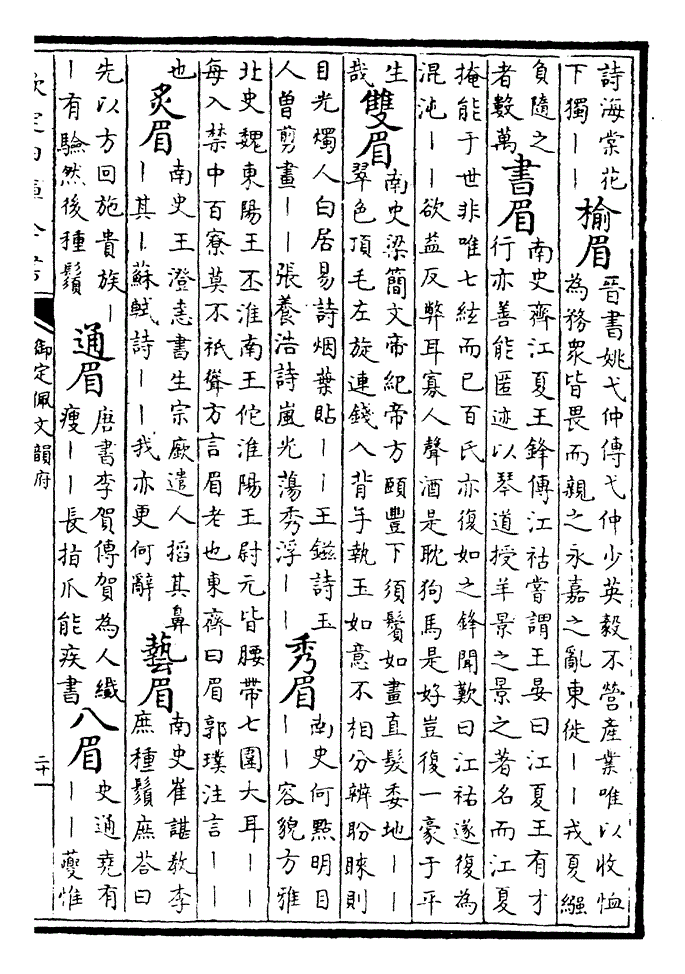 詩海棠花
下獨｜｜
榆眉
晉書姚弋仲傳弋仲少英毅不營產業唯以收恤
為務衆皆畏而親之永嘉之亂東徙｜｜戎夏繈
負隨之
者數萬
書眉
南史齊江夏王鋒傳江祜嘗謂王晏曰江夏王有才
行亦善能匿迹以琴道授羊景之景之著名而江夏
掩能于世非唯七絃而已百氏亦復如之鋒聞歎曰江祜遂復為
混沌｜｜欲益反弊耳寡人聲酒是耽狗馬是好豈復一豪于平
生
哉
雙眉
南史梁簡文帝紀帝方頤豐下須鬢如畫直髮委地｜｜
翠色項毛左旋連錢入背手執玉如意不相分辨盼睞則
目光燭人白居易詩烟葉貼｜｜王鎡詩玉
人曽剪畫｜｜張養浩詩嵐光蕩秀浮｜｜
秀眉
南史何㸃明目
｜｜容貌方雅
北史魏東陽王丕淮南王佗淮陽王尉元皆腰帶七圍大耳｜｜
每入禁中百寮莫不祗聳方言眉老也東齊曰眉郭璞注言｜｜
也
炙眉
南史王澄恚書生宗廞遣人搯其鼻
｜其｜蘇軾詩｜｜我亦更何辭
藝眉
南史崔諶敎李
庶種鬚庶荅曰
先以方回施貴族｜
｜有驗然後種鬚
通眉
唐書李賀傳賀為人纖
瘦｜｜長指爪能疾書
八眉
史通堯有
｜｜夔惟
欽定四庫全書
御定佩文韻府
二十